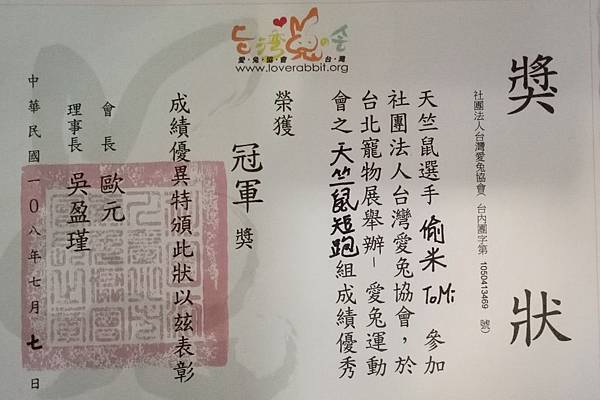 台灣兔の会
愛·兔·協·會 台·灣
www.loverabbit.org
獎狀
社團法人台灣愛兔協會(台內團字第 1050413469 號)
天竺鼠選手 偷米 ToMi 參加
社團法人台灣愛兔協會，於
台北寵物展舉辦－愛兔運動
會之天竺鼠短跑組成績優秀
榮獲
冠軍獎
成績優異特頒此狀以茲表彰
會長 歐元
理事長 吳盈瑾
中華民國一０八年七月七日